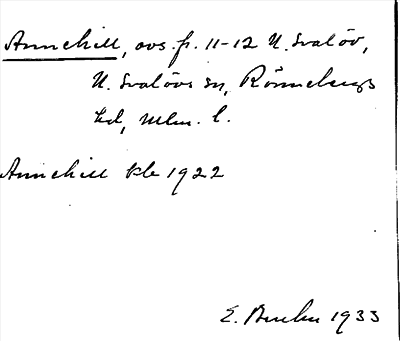 Annehill, avs. fr. 11-12 N. Svalöv,
N. Svalövs sn, Rönnebergs
hd, Mlm. l.
Annehill kbr 1922
E. 1933